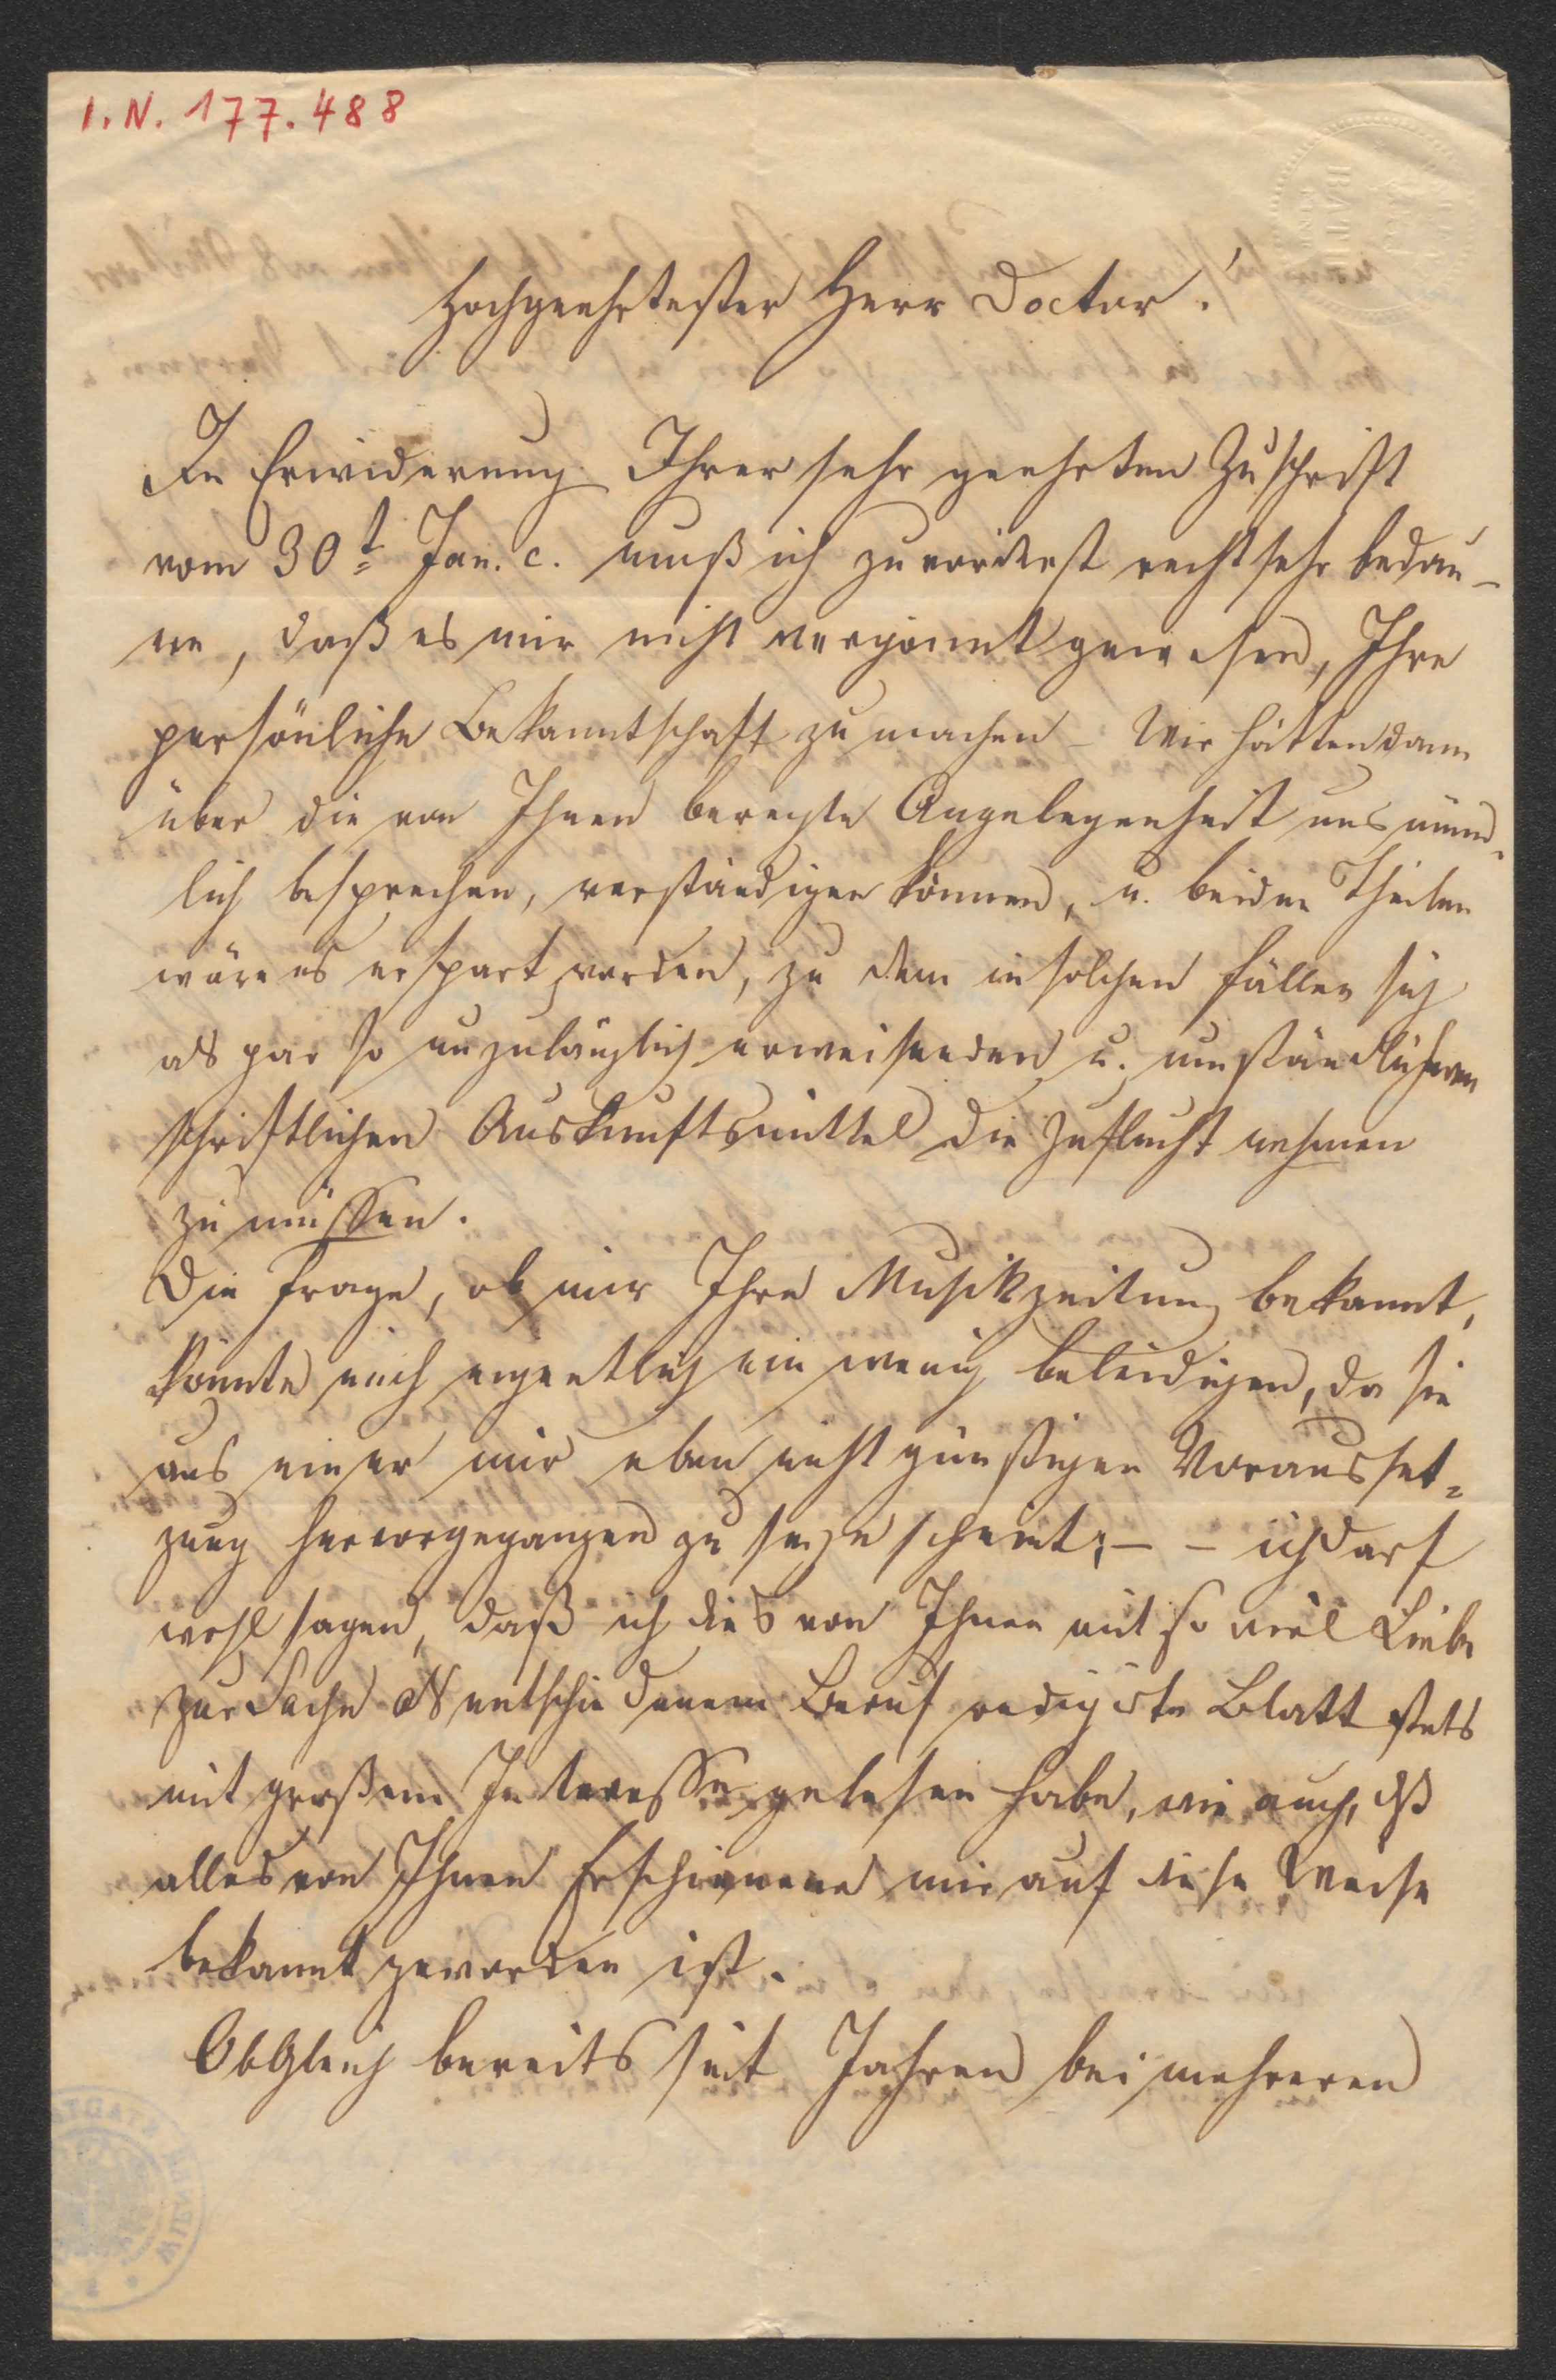 I. N. 177.488
BATH
Hochgeehrtester Herr Doctor!
In Erwiderung Ihrer sehr geehrten Zuschrift
vom 30t Jan. c. muß ich zuvörderst recht sehr bedau-
re, daß es mir nicht vergönnt gewesen, Ihre
persönliche Bekanntschaft zu machen – Wir hätten dann
über die von Ihnen beregte Angelegenheit uns münd-
lich besprechen, verständigen können, u. beiden Theilen
wäre es erspart worden, zu dem in solchen Fällen sich
als gar so unzulänglich erweisenden u. umständlicheren
schriftlichen Auskunftsmittel die Zuflucht nehmen
zu müssen.
Die Frage, ob mir Ihre Musikzeitung bekannt,
könnte mich eigentlich ein wenig beleidigen, da sie
aus einer mir eben nicht günstigen Voraus set-
zung hervorgegangen zu seyn scheint; – – ich darf
wohl sagen, daß ich dies von Ihnen mit so viel Liebe
zur Sache als entschiedenem Beruf redigirte Blatt stets
mit großem Interesse gelesen habe, wie auch, dß
alles von Ihnen Erschienene mir auf diese Weise
bekannt geworden ist.
Obgleich bereits seit Jahren bei mehreren
WIEN